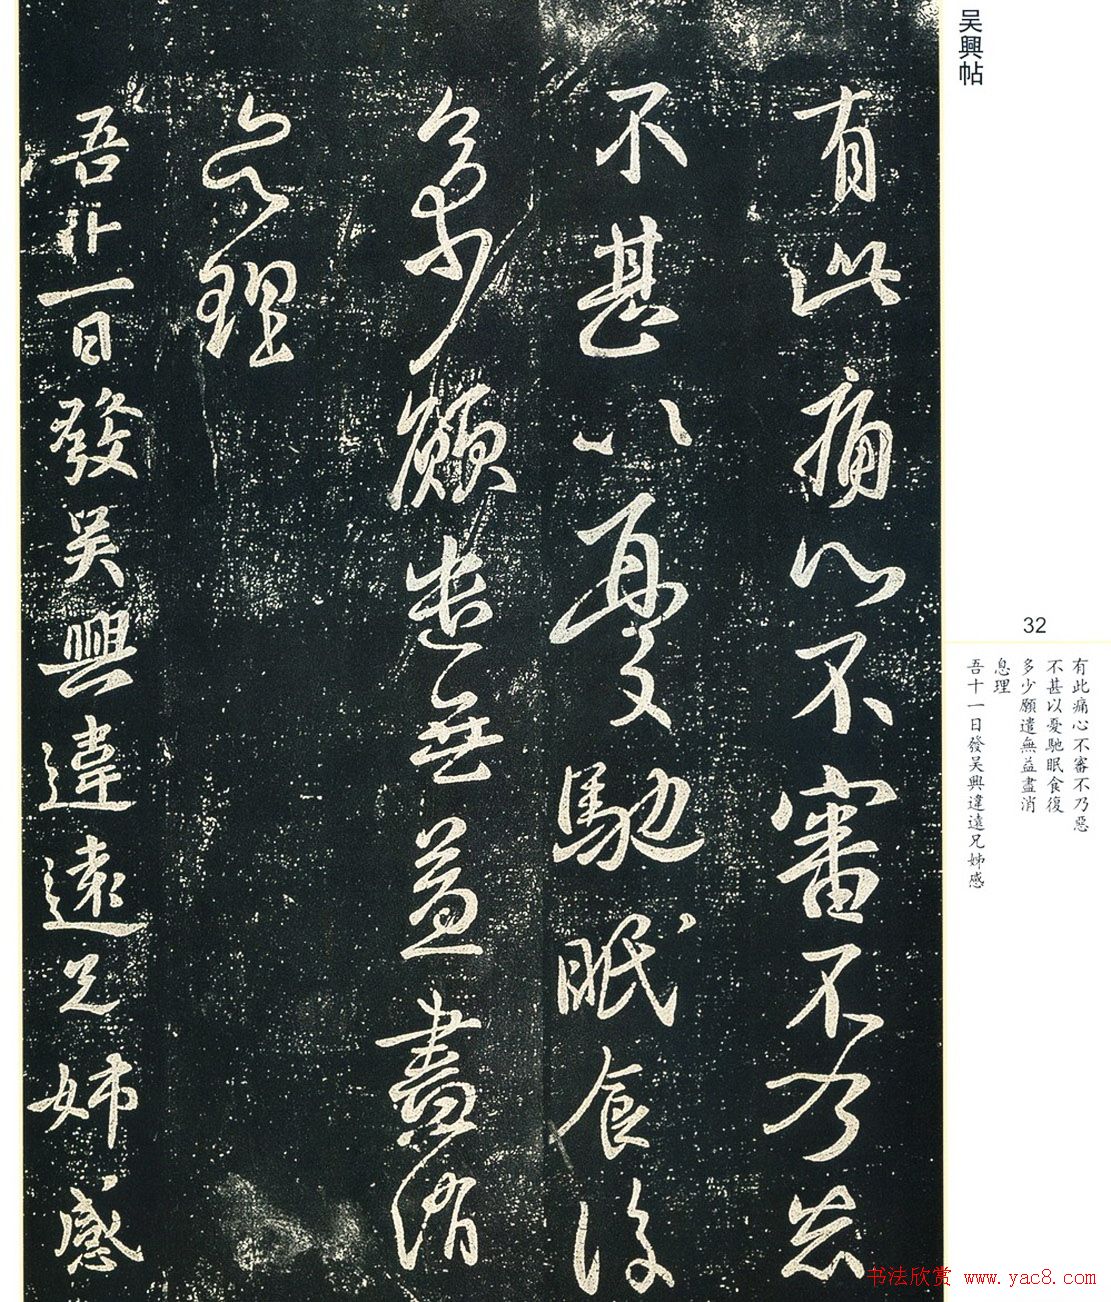 吴興帖
有此痛心不審不乃惡
不甚以憂馳眠食復
多少願遣無益盡消
息理
吾十一日發吴興違遠兄姊感
32
有此痛心不審不乃惡
不甚以憂馳眠食復
多少願遣無益盡消
息理
吾十一日發吴興違遠兄姊感
书法欣赏 www.yac8.com